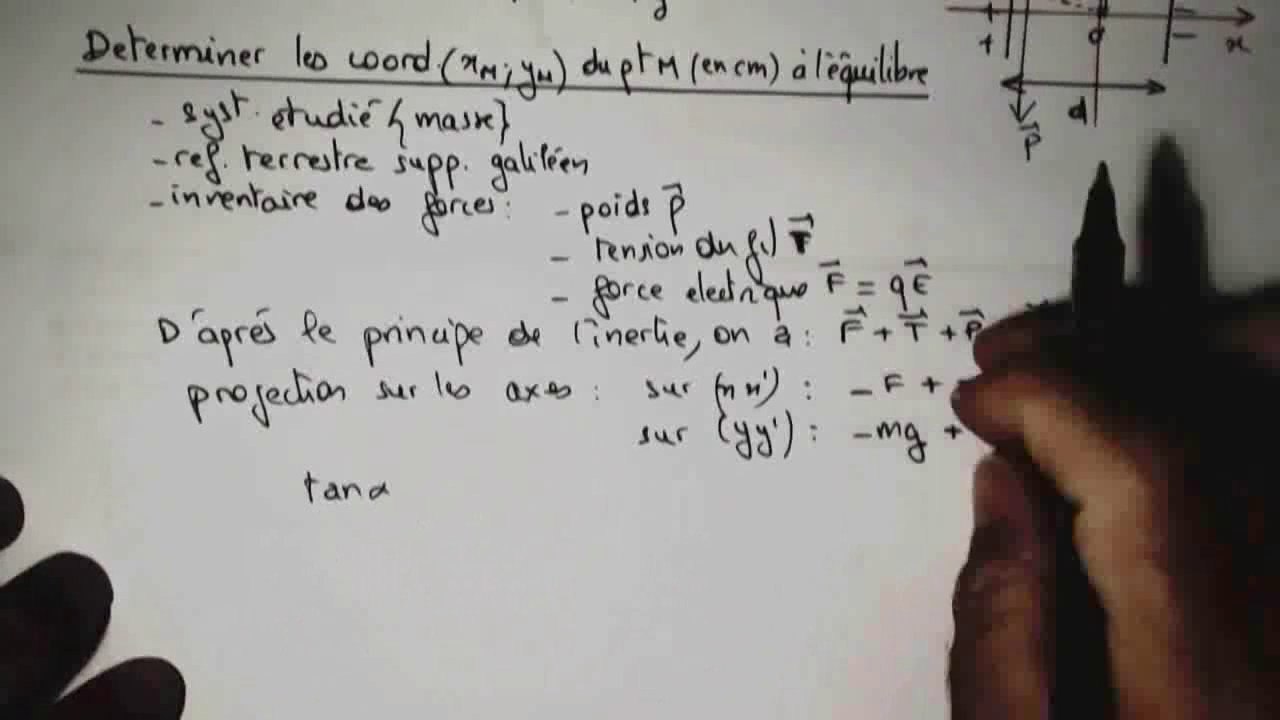 y
Determiner les coord. (xM; yM) du pt M (en cm) à l'équilibre
- syst. étudié {masse}
- ref. terrestre supp. galiléen
- inventaire des forces: - poids P⃗
- tension du fil T⃗
- force electrique F⃗ = qE⃗
D'aprés le principe de l'inertie, on a: F⃗ + T⃗ + P⃗
projection sur les axes: sur (xx'): - F +
sur (yy'): - mg +
tanα
+ o - x
d
P⃗